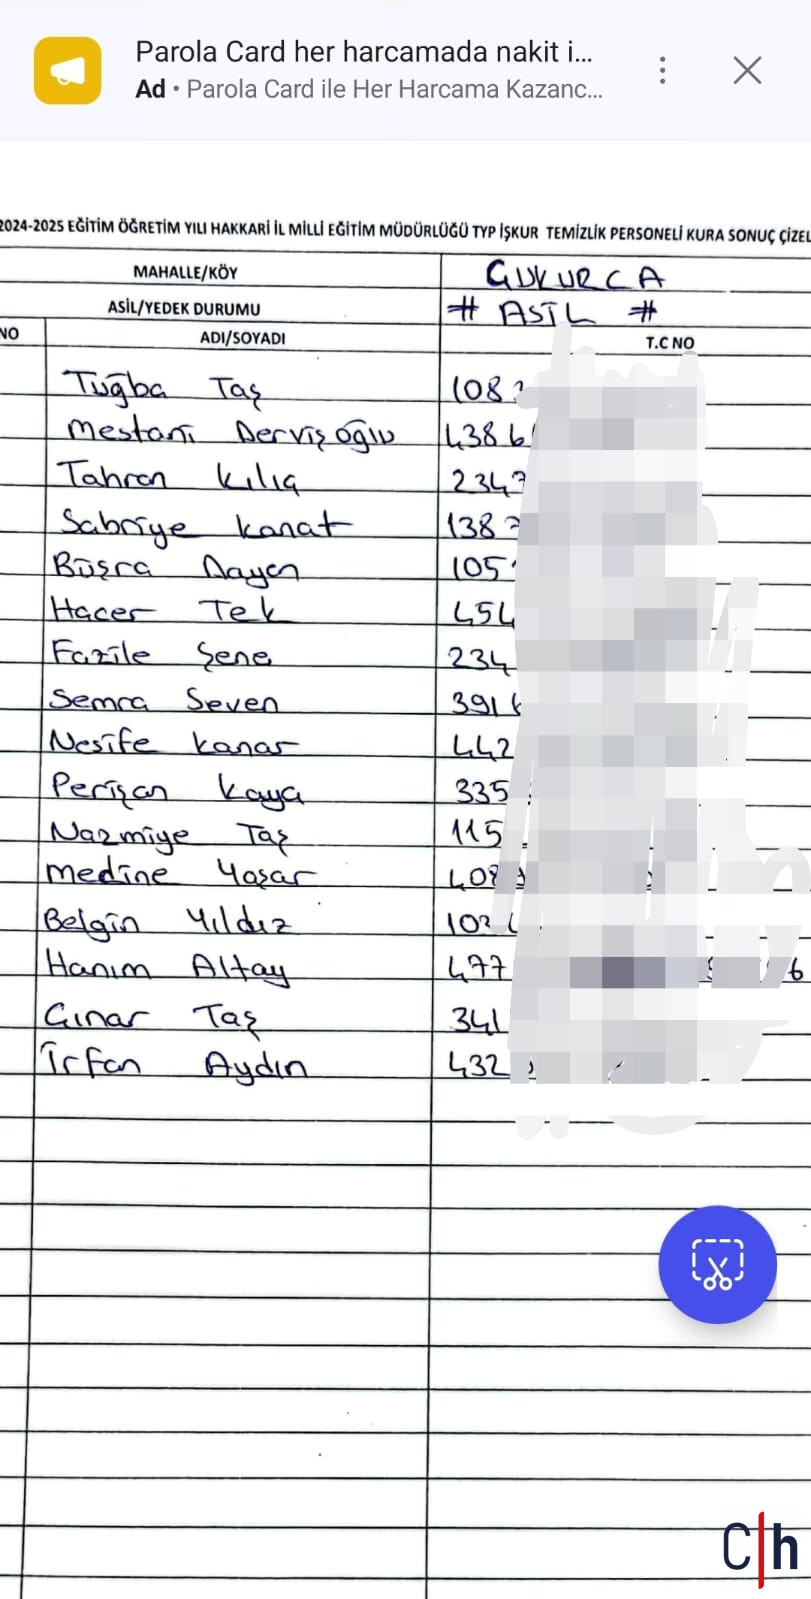 Parola Card her harcamada nakit i...
Ad • Parola Card ile Her Harcama Kazanc...
2024-2025 EĞİTİM ÖĞRETİM YILI HAKKARİ İL MİLLİ EĞİTİM MÜDÜRLÜĞÜ TYP İŞKUR TEMİZLİK PERSONELİ KURA SONUÇ ÇİZEL
MAHALLE/KÖY ÇUKURCA
ASİL/YEDEK DURUMU # ASİL #
NO ADI/SOYADI T.C NO
Tuğba Taş 108
Mestani Dervişoğlu 438 6
Tahran Kılıç 234
Sabriye Kanat 138
Büşra Dayan 105
Hacer Tek 454
Fazile Şene 234
Semra Seven 391
Nesife Kanar 442
Perişan Kaya 335
Nazmiye Taş 115
Medine Yaşar 408
Belgin Yıldız 103
Hanım Altay 477 6
Çınar Taş 341
İrfan Aydın 432
C|h